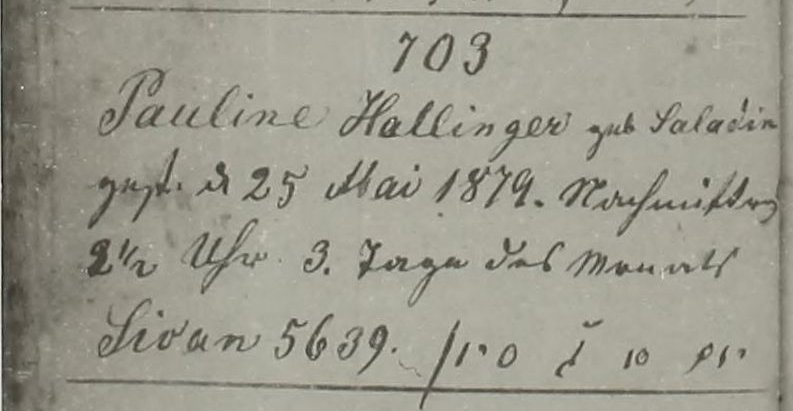 703
Pauline Hallinger geb Saladin
gest. d 25 Mai 1879. Nachmittag
2½ Uhr 3. Tage des Monats
Sivan 5639. יום א ג סיון